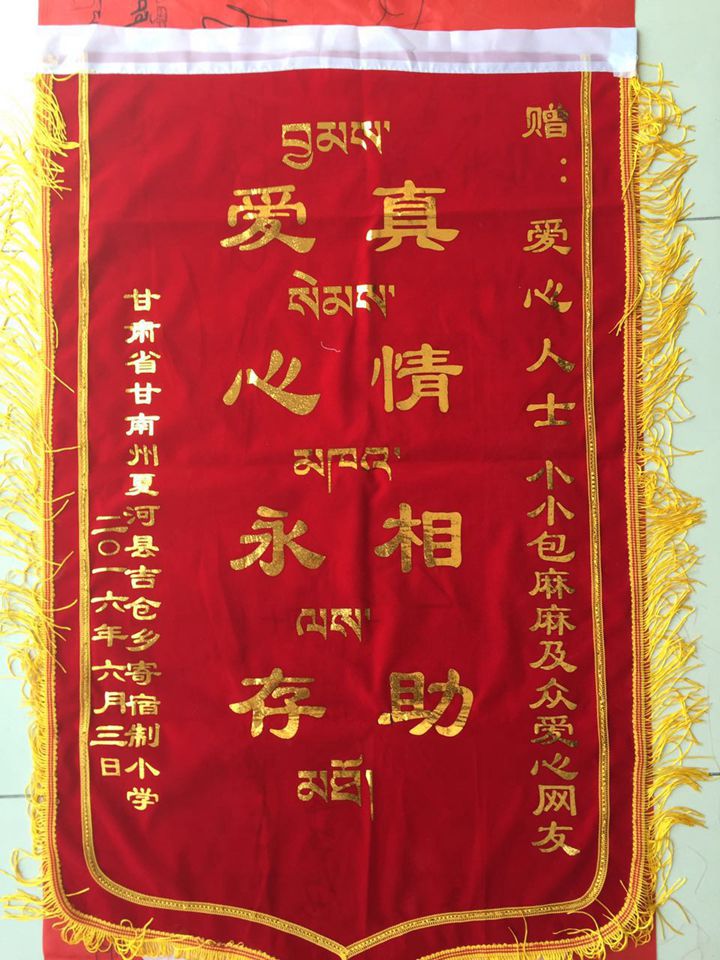 赠：爱心人士 小小包麻麻及众爱心网友
真情相助
爱心永存
བྱམས་
སེམས་
མཁའ་
ལས་
མཐོ།
甘肃省甘南州夏河县吉仓乡寄宿制小学
二〇一六年六月三日